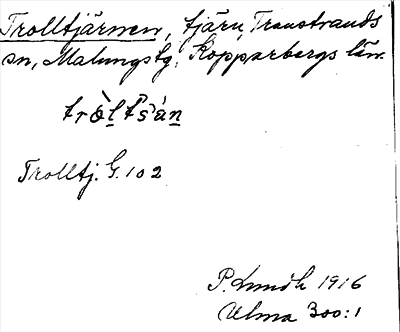 Trolltjärnen, tjärn, Transtrands
sn, Malungs tg, Kopparbergs län.
tròltsán
Trolltj. G. 102
P. Lundh 1916
Ulma 300:1